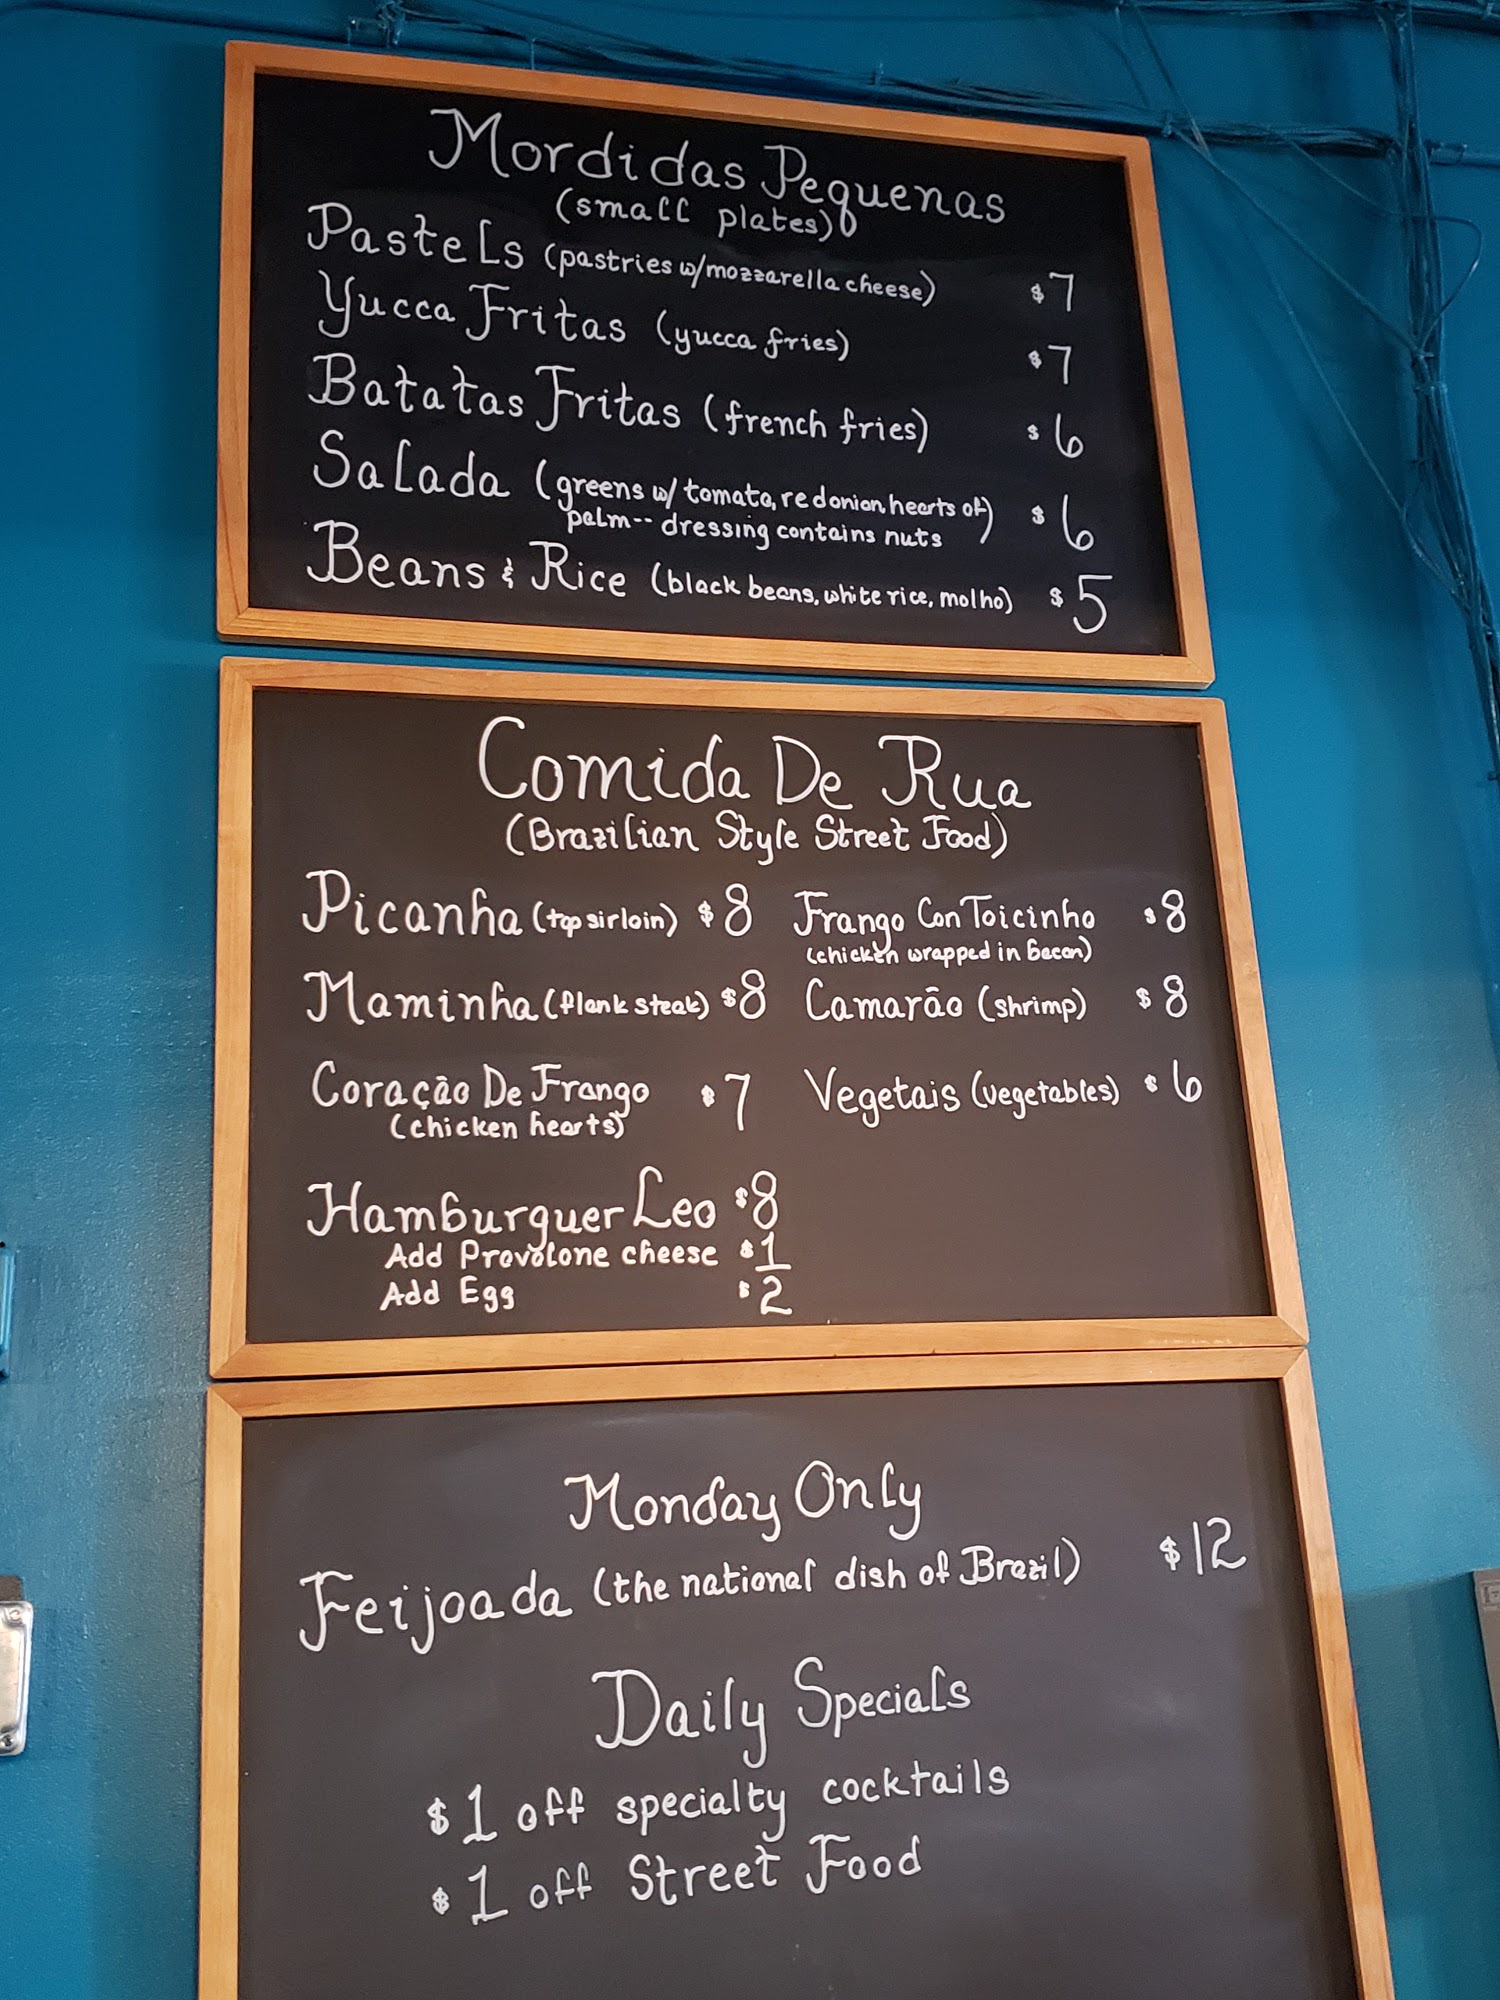 Mordidas Pequenas
(small plates)
Pastels (pastries w/mozzarella cheese) $7
Yucca Fritas (yucca fries) $7
Batatas Fritas (french fries) $6
Salada (greens w/ tomato, red onion hearts of) $6
palm-- dressing contains nuts
Beans & Rice (black beans, white rice, molho) $5
Comida De Rua
(Brazilian Style Street Food)
Picanha (top sirloin) $8
Maminha (flank steak) $8
Coração De Frango $7
(chicken hearts)
Hamburguer Leo $8
Add Provolone cheese $1
Add Egg $2
Frango Con Toicinho $8
(chicken wrapped in bacon)
Camarão (shrimp) $8
Vegetais (vegetables) $6
Monday Only
Feijoada (the national dish of Brazil) $12
Daily Specials
$1 off specialty cocktails
$1 off Street Food